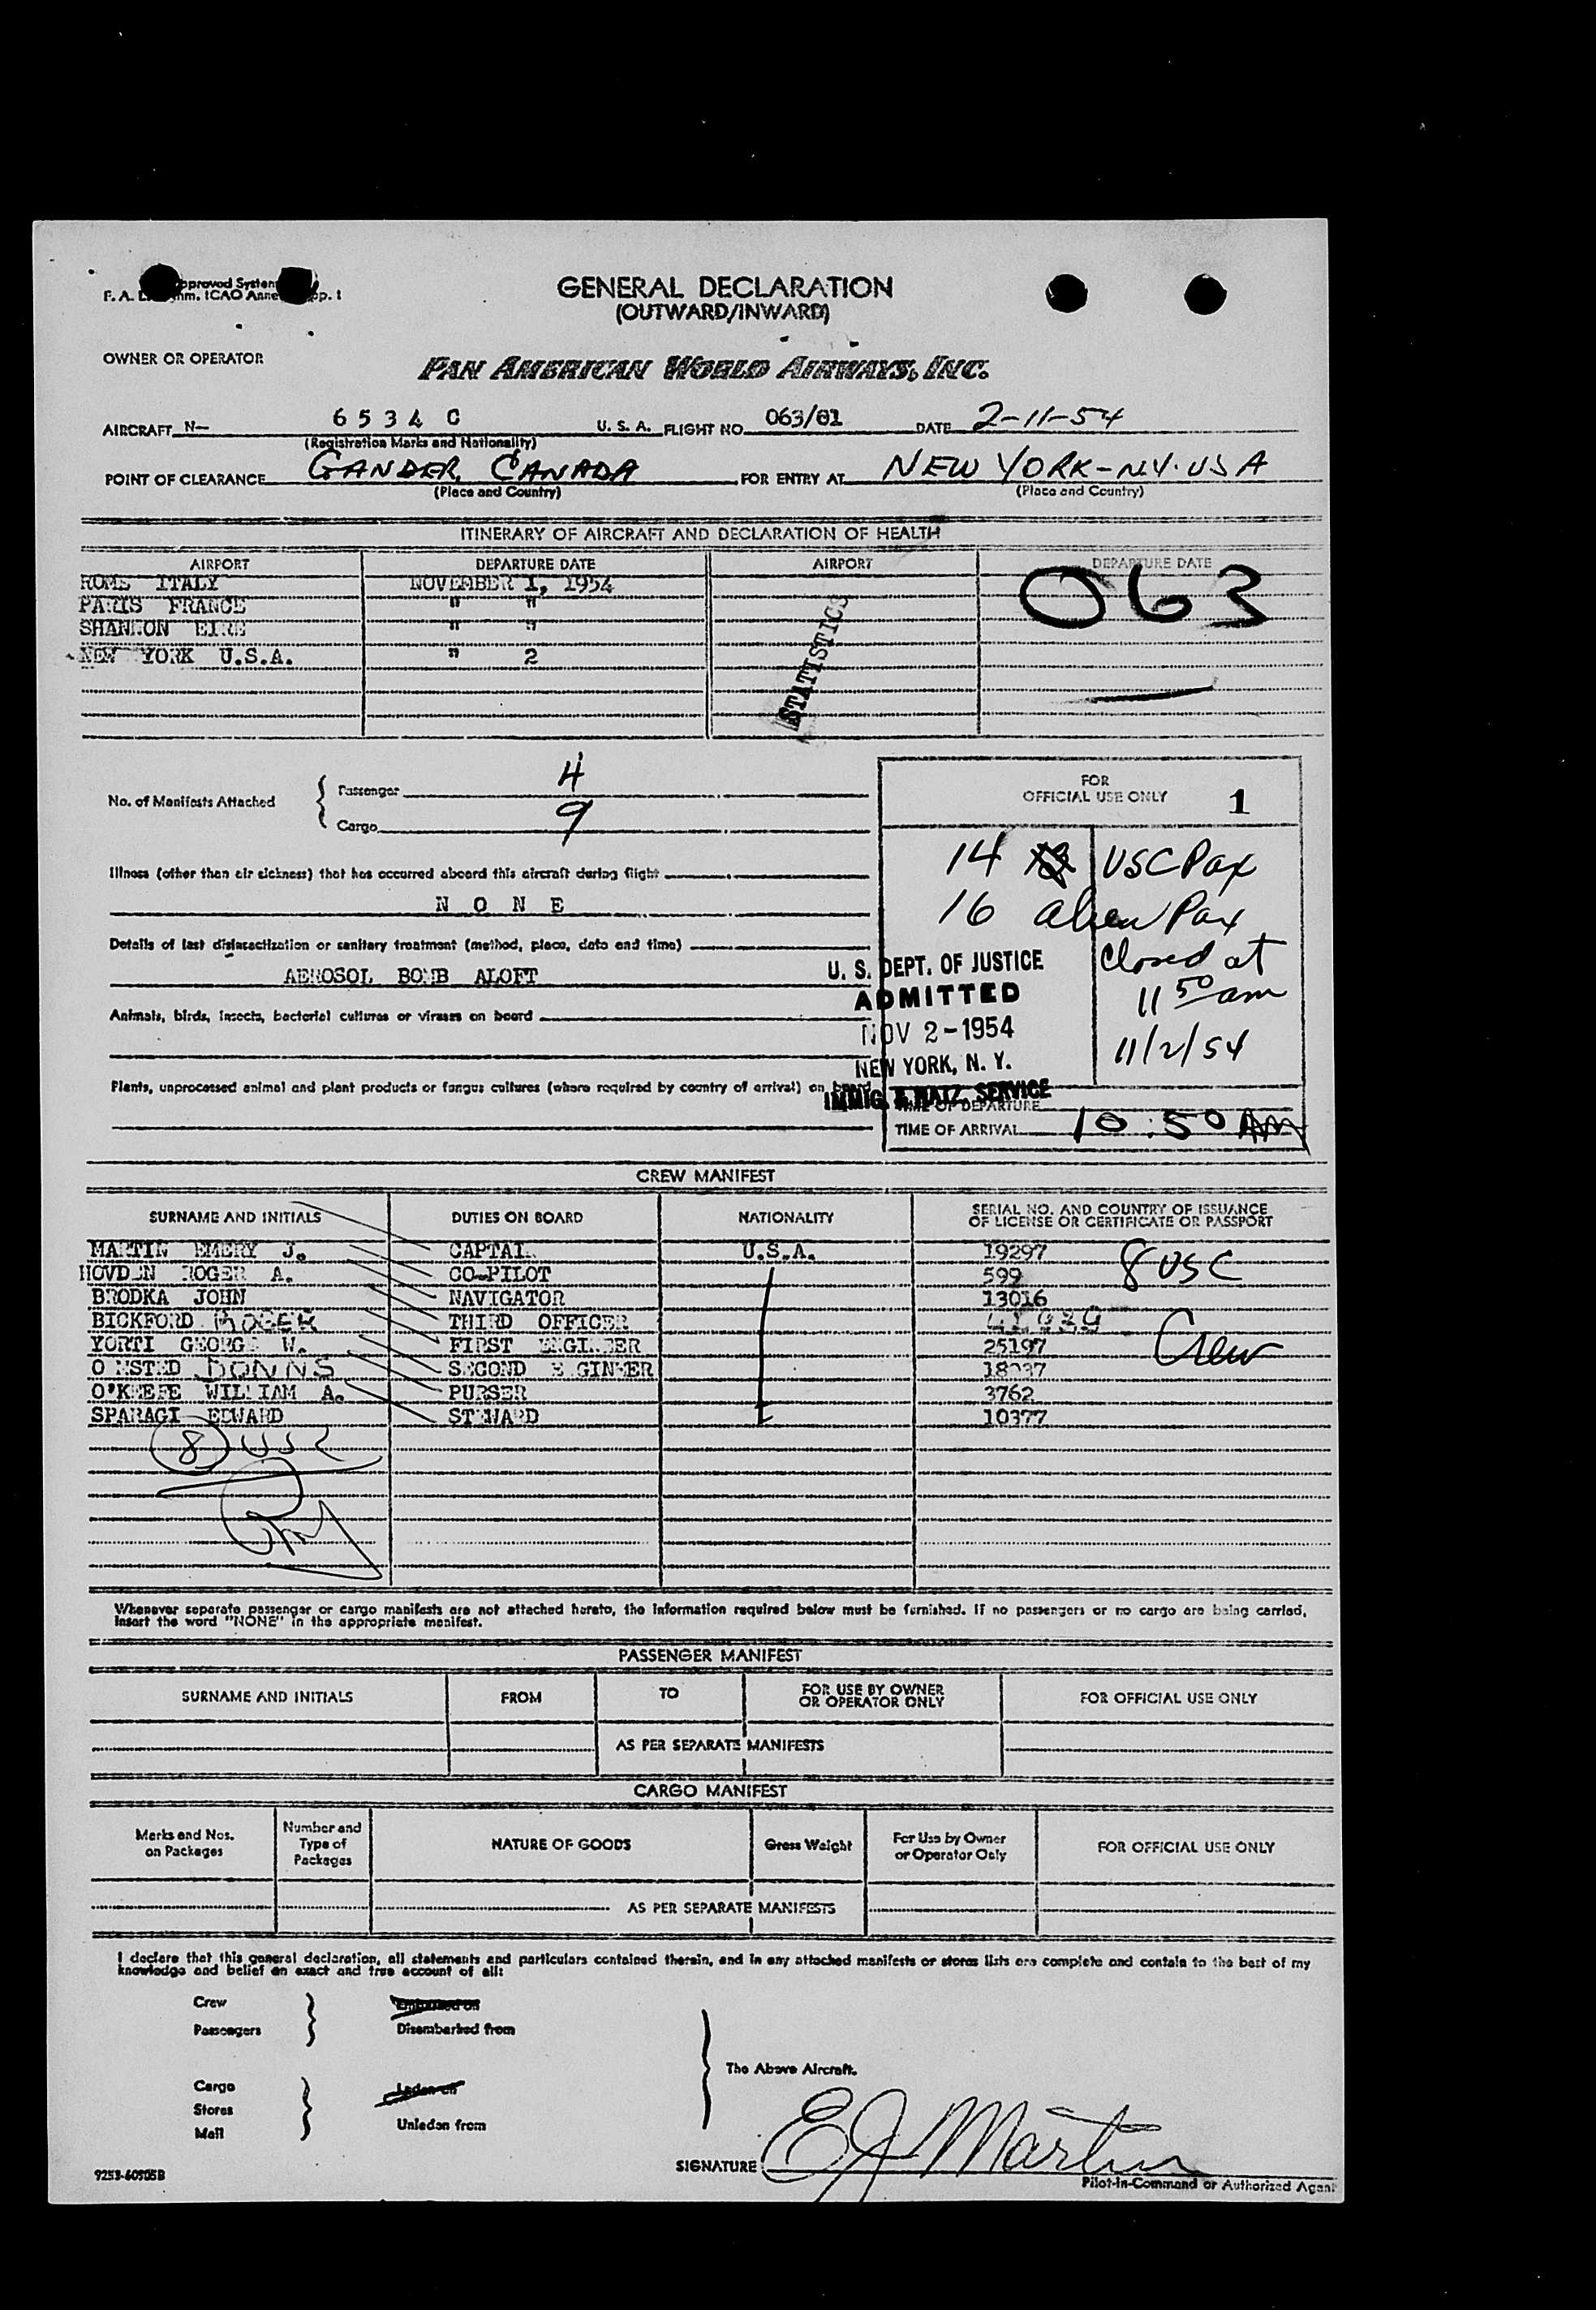 GENERAL DECLARATION
(OUTWARD/INWARD)
OWNER OR OPERATOR
PAN AMERICAN WORLD AIRWAYS, INC.
AIRCRAFT N- 6534C U. S. A. FLIGHT NO. 063/01 DATE 2-11-54
(Registration Marks and Nationality)
POINT OF CLEARANCE GANDER, CANADA FOR ENTRY AT NEW YORK-N.Y. USA
(Place and Country) (Place and Country)
ITINERARY OF AIRCRAFT AND DECLARATION OF HEALTH
AIRPORT DEPARTURE DATE AIRPORT DEPARTURE DATE
ROME ITALY NOVEMBER 1, 1954 063
PARIS FRANCE " "
SHANNON EIRE " "
NEW YORK U.S.A. " 2
STATISTICS
No. of Manifests Attached
Passenger 4
Cargo 9
FOR
OFFICIAL USE ONLY 1
14 USC Pax
16 alien Pax
Closed at
11 50 am
11/2/54
Illness (other than air sickness) that has occurred aboard this aircraft during flight
N O N E
Details of last disinsectization or sanitary treatment (method, place, date and time)
AEROSOL BOMB ALOFT
Animals, birds, insects, bacterial cultures or viruses on board
Plants, unprocessed animal and plant products or fungus cultures (where required by country of arrival) on board
U. S. DEPT. OF JUSTICE
ADMITTED
NOV 2-1954
NEW YORK, N. Y.
IMMIG. & NATZ. SERVICE
TIME OF DEPARTURE
TIME OF ARRIVAL 10:50 AM
CREW MANIFEST
SURNAME AND INITIALS DUTIES ON BOARD NATIONALITY SERIAL NO. AND COUNTRY OF ISSUANCE
OF LICENSE OR CERTIFICATE OR PASSPORT
MARTIN EMERY J. CAPTAI U.S.A. 19297 8 USC
HOVDEN ROGER A. CO-PILOT 599
BRODKA JOHN NAVIGATOR 13016
BICKFORD ROGER THIRD OFFICER
YORTI GEORGE W. FIRST ENGINEER 25197 Crew
DONNS SECOND ENGINEER
O'KEEFE WILLIAM A. PURSER 3762
SPARAGI EDWARD STEWARD 10377
8 USC
Whenever separate passenger or cargo manifests are not attached hereto, the information required below must be furnished. If no passengers or no cargo are being carried,
insert the word "NONE" in the appropriate manifest.
PASSENGER MANIFEST
SURNAME AND INITIALS FROM TO FOR USE BY OWNER
OR OPERATOR ONLY FOR OFFICIAL USE ONLY
AS PER SEPARATE MANIFESTS
CARGO MANIFEST
Marks and Nos.
on Packages
Number and
Type of
Packages
NATURE OF GOODS
Gross Weight
For Use by Owner
or Operator Only
FOR OFFICIAL USE ONLY
AS PER SEPARATE MANIFESTS
I declare that this general declaration, all statements and particulars contained therein, and in any attached manifests or stores lists are complete and contain to the best of my
knowledge and belief an exact and true account of all:
Crew
Passengers Disembarked from
The Above Aircraft.
Cargo Laden on
Stores
Mail Unladen from
SIGNATURE EJ Martin
Pilot-in-Command or Authorized Agent
9253-60505B